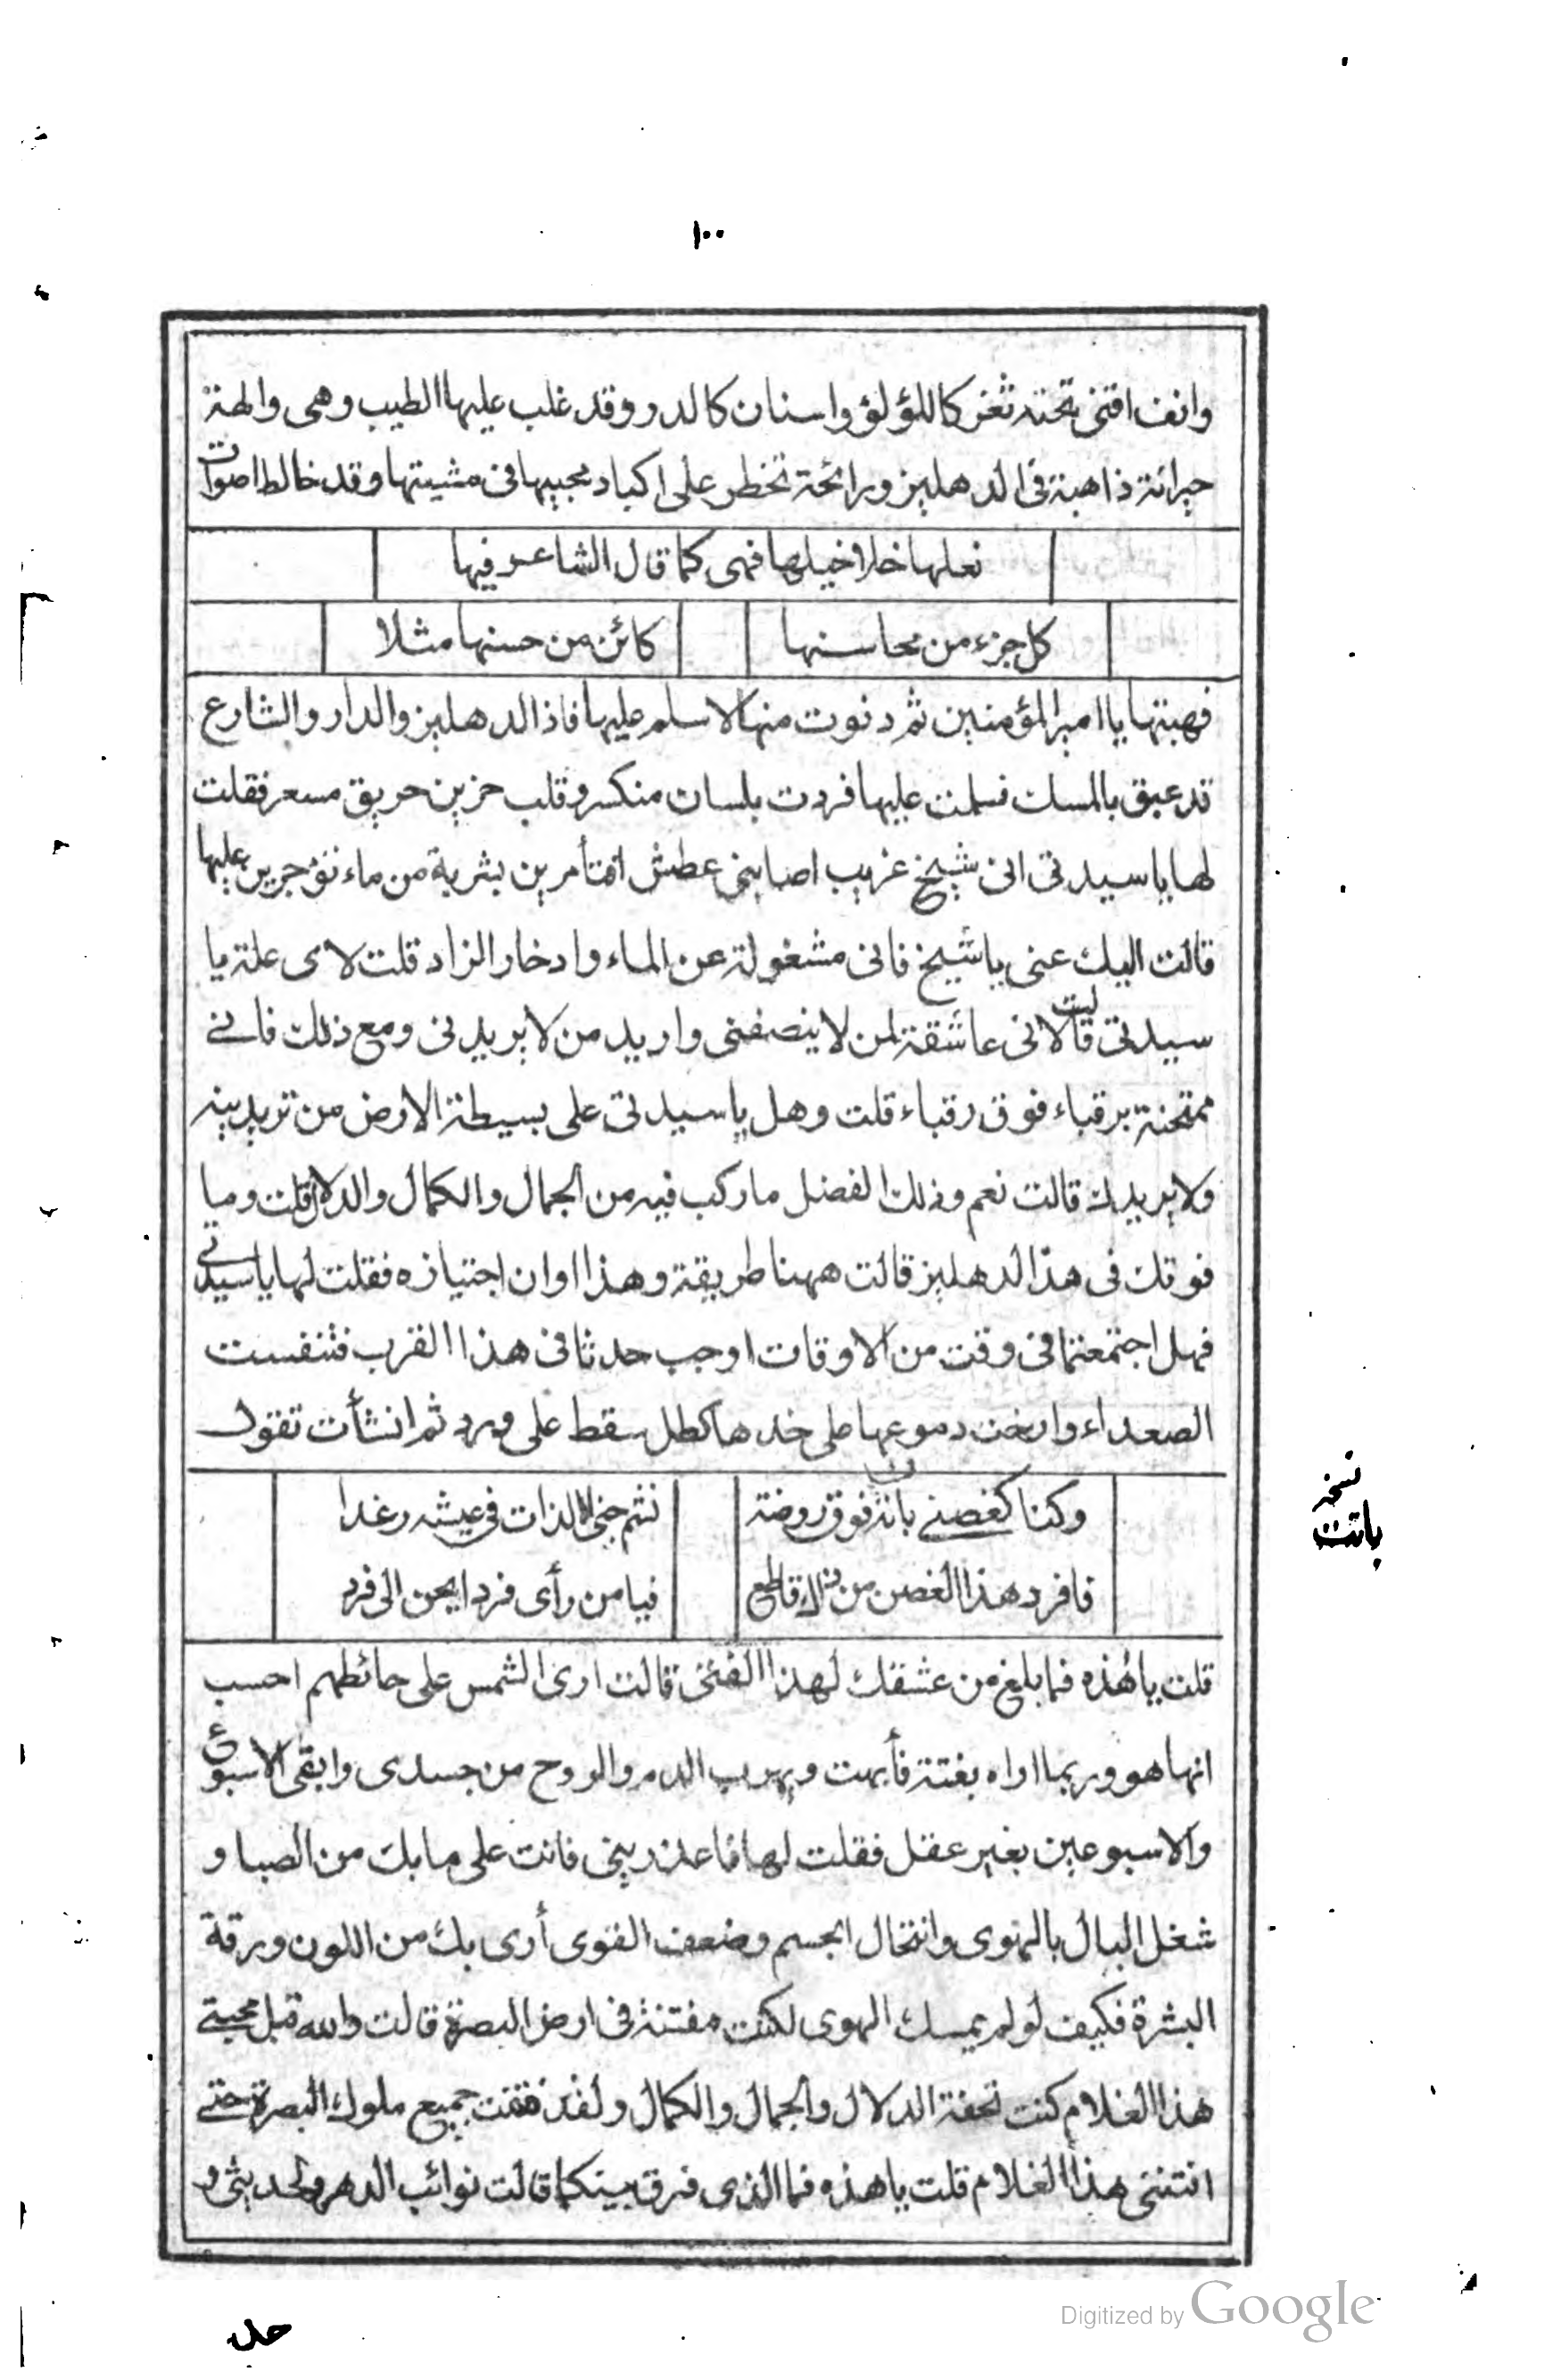 ١٠٠
وانف اقنى تحته ثغر كاللؤلؤ واسنان كالدر وقد غلب عليها الطيب وهى والهة
حيرانة ذاهبة فى الدهليز ورائحة تخطر على اكباد محبيها فى مشيتها وقد خالط اصوات
نعلها خلاخيلها فهى كما قال الشاعر فيها
كل جزء من محاسنها كائن من حسنها مثلا
فهبتها يا امير المؤمنين ثم دنوت منها لاسلم عليها فاذ الدهليز والدار والشارع
قد عبق بالمسك فسلمت عليها فردت بلسان منكسر وقلب حزين حريق مسعر فقلت
لها يا سيدتى انى شيخ غريب اصابنى عطش افتأمرين بشربة من ماء تؤجرين عليها
قالت اليك عنى يا شيخ فانى مشغولة عن الماء وادخار الزاد قلت لاى علة يا
سيدتى قالت لانى عاشقة لمن لا ينصفنى واريد من لا يريدنى ومع ذلك فانے
ممتحنة برقباء فوق رقباء قلت وهل يا سيدتى على بسيطة الارض من تريدينه
ولا يريدك قالت نعم وذلك الفضل ما ركب فيه من الجمال والكمال والدلال قلت وما
فوقك فى هذا الدهليز قالت ههنا طريقة وهذا اوان اجتيازه فقلت لها يا سيدتے
فهل اجتمعتما فى وقت من الاوقات اوجب حدثا فى هذا القرب فتنفست
الصعداء وارخت دموعها على خدها كطل سقط على ورد ثم انشأت تقول
وكنا كغصنے بانة فوق روضة نشم جنى الذات فى عيشه رغدا
فافرد هذا الغصن من ذاك قاطع فيا من رأى فردا يحن الى فرد
نسخه
باتت
قلت يا هذه فما بلغ من عشقك لهذا الفتى قالت ارى الشمس على حائطهم احسب
انها هو وربما اراه بغتة فأبهت ويهرب الدم والروح من جسدى وابقى الاسبوع
والاسبوعين بغير عقل فقلت لها فاعذرينى فانت على ما بك من الصبا و
شغل البال بالهوى وانتحال الجسم وضعف القوى أرى بك من اللون ورقة
البشرة فكيف لو لم يمسك الهوى لكنت مفتنة فى ارض البصرة قالت والله قبل محبتے
هذا الغلام كنت تحفة الدلال والجمال والكمال ولقد فتنت جميع ملوك البصرة حتے
افتتنى هذا الغلام قلت يا هذه فما الذى فرق بينكما قالت نوائب الدهر ولحديثى و
حد
Digitized by Google